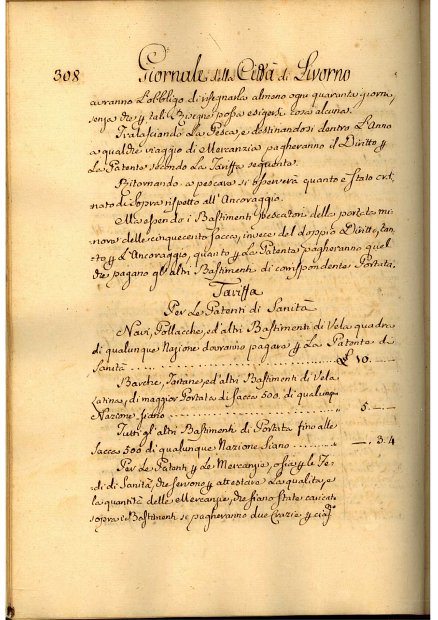 308 Giornale della Città di Livorno
avranno l'obbligo di rassegnarla almeno ogni quaranta giorni,
senza che p tali Rasegne possa esigersi cosa alcuna.
Tralasciando la Pesca, e destinandosi dentro l'Anno
a qualche viaggio di Mercanzia pagheranno il Diritto p
la Patente secondo la Tariffa seguente.
Ritornando a pescare si osserverà quanto è stato ordi
nato di sopra rispetto all'Ancoraggio.
Ma essendo i Bastimenti pescatori della portata mi
nore delle cinquecento sacca, invece del doppio Diritto, tan
to p l'Ancoraggio, quanto p la Patente pagheranno quel
che pagano gl'altri Bastimenti di corrispondente Portata.
Tariffa
Per le Patenti di Sanità
Navi, Pollacche, ed altri Bastimenti di Vela quadra
di qualunque Nazione dovranno pagare p la Patente di
Sanità 10. —
Barche, Tartane, ed'altri Bastimenti di Vela
Latina, di maggior Portata di sacca 500. di qualunq
Nazione siano " 5. —
Tutti gl'altri Bastimenti di Portata fino alle
sacca 500 di qualunque Nazione siano " —. 3. 4
Per le Patenti p le Mercanzie, o sia p le Fe
di di Sanità, che servono p attestare la qualità, e
la quantità delle Mercanzie, che siano state caricate
sopra i Bastimenti si pagheranno due Crazie p ciasc